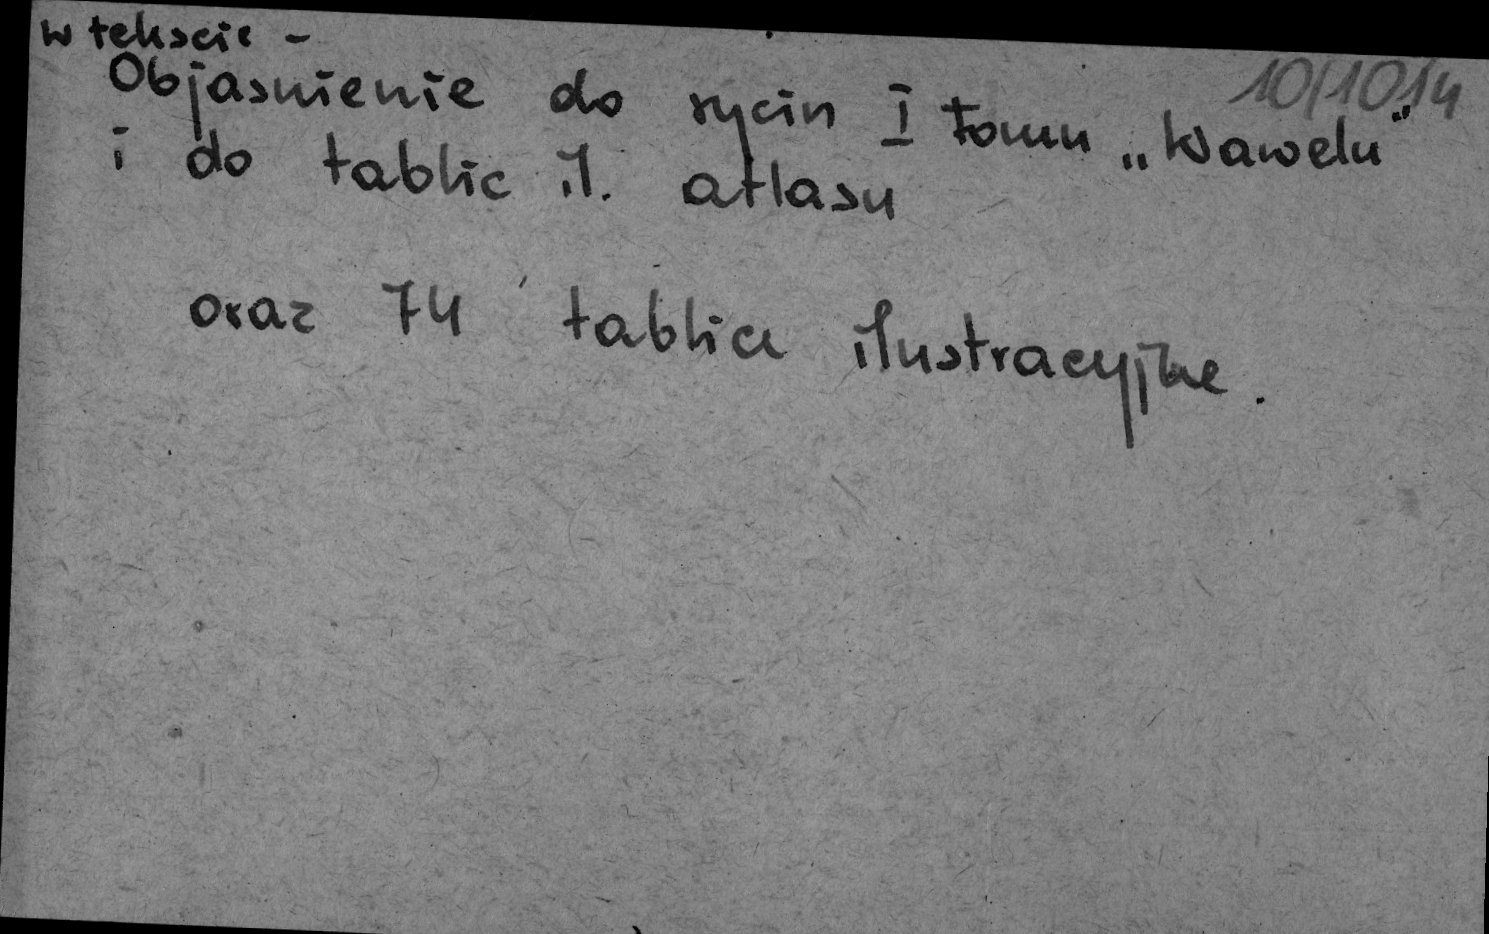 w tekscie -
10/1014
Objasnienie do rycin I tomu „Wawelu"
i do tablic il. atlasu
oraz 74 tablice ilustracyjne.